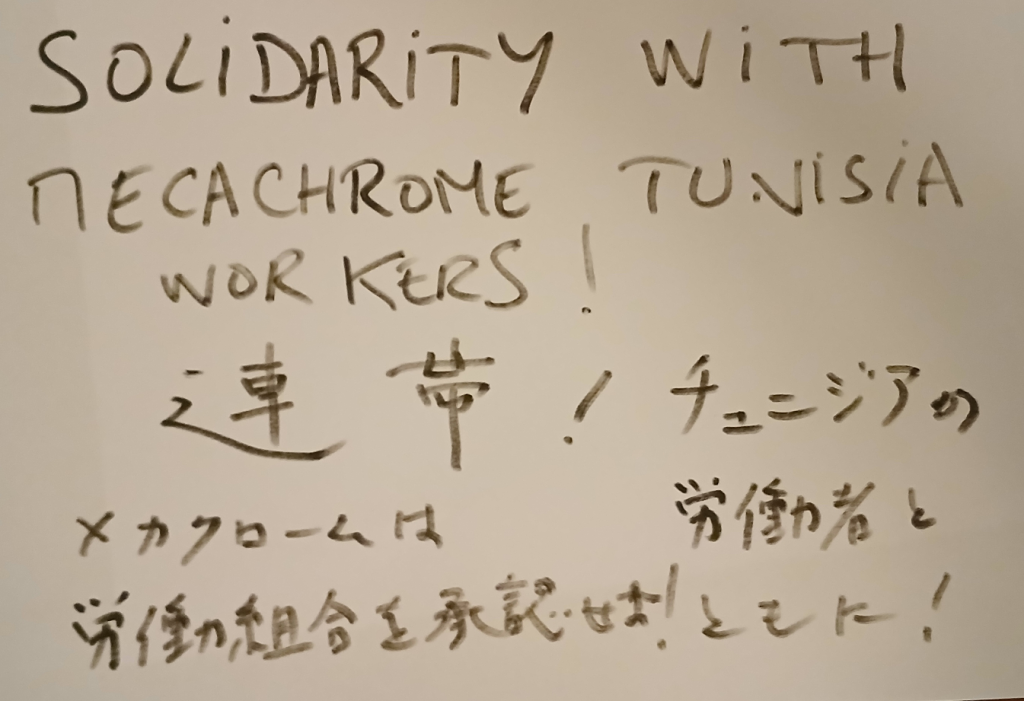 SOLiDARiTY WiTH
MECACHROME TUNiSiA
WORKERS!
連帯! チュニジアの
メカクロームは 労働者と
労働組合を承認せよ! ともに!